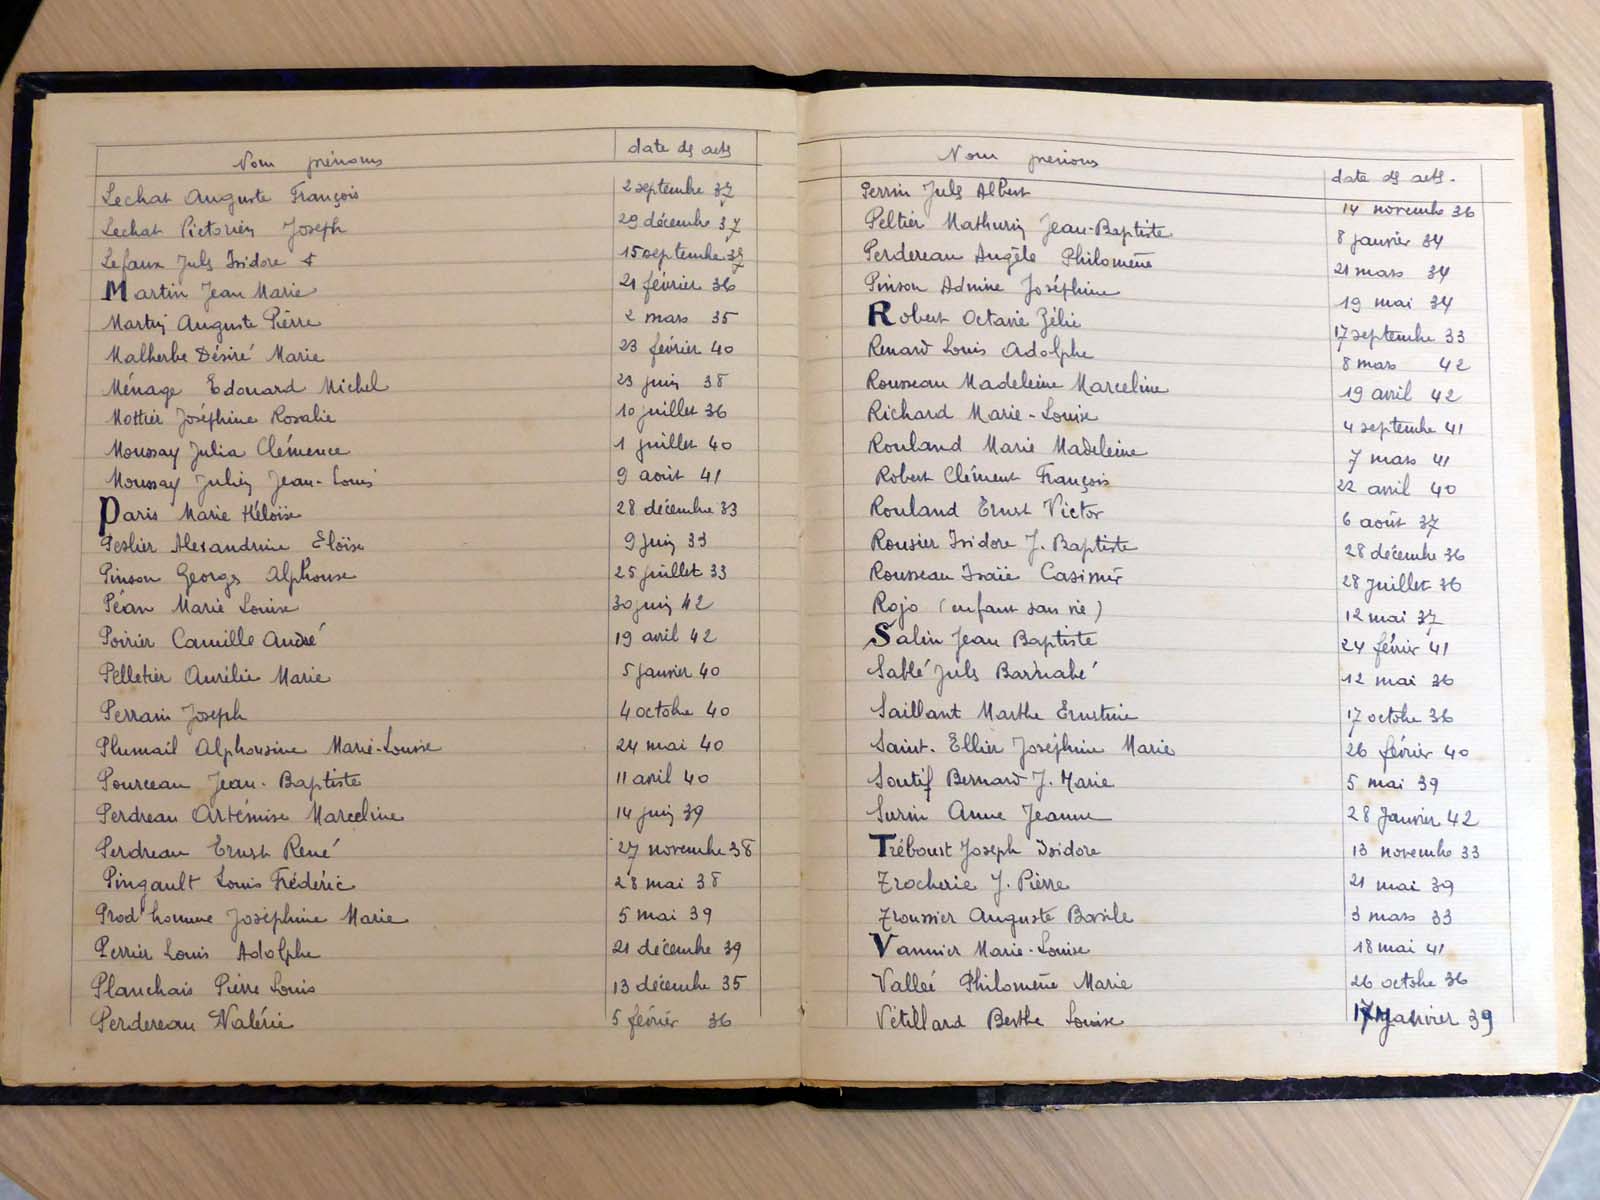 Nom prénoms date ds acts
Lechat Auguste François 2 septembre 37
Lechat Victorien Joseph 29 décembre 37
Lefaux Juls Isidore 15 septembre 37
Martin Jean Marie 21 février 36
Martin Auguste Pierre 2 mars 35
Malherbe Désiré Marie 23 février 40
Ménage Edouard Michel 23 juin 38
Mottier Joséphine Rosalie 10 juillet 36
Moussay Julia Clémence 1 juillet 40
Moussay Julien Jean-Louis 9 août 41
Paris Marie Héloïse 28 décembre 33
Peslier Alexandrine Eloïse 9 juin 33
Pinson Georgs Alphonse 25 juillet 33
Péan Marie Louise 30 juin 42
Poirier Camille André 19 avril 42
Pelletier Aurélie Marie 5 janvier 40
Joseph 4 octobre 40
Plumail Alphonsine Marie-Louise 24 mai 40
Pourceau Jean-Baptiste 11 avril 40
Perdreau Artémise Marceline 14 juin 39
Perdreau Ernest René 27 novembre 38
Pingault Louis Frédéric 28 mai 38
Prod'homme Joséphine Marie 5 mai 39
Perrier Louis Adolphe 21 décembre 39
Planchais Pierre Louis 13 décembre 35
Perdereau Valérie 5 février 36
Nom prénoms date ds acts.
Perrin Juls Albert 14 novembre 36
Peltier Mathurin Jean-Baptiste 8 janvier 34
Perdereau Angèle Philomène 21 mars 34
Pinson Joséphine 19 mai 34
Robert Octavie Zélie 17 septembre 33
Renard Louis Adolphe 8 mars 42
Rousseau Madeleine Marceline 19 avril 42
Richard Marie-Louise 4 septembre 41
Rouland Marie Madeleine 7 mars 41
Robert Clément François 22 avril 40
Rouland Ernest Victor 6 août 37
Rousier Isidore J. Baptiste 28 décembre 36
Rousseau Isaïe Casimir 28 juillet 36
Rojo (enfant sans vie) 12 mai 37
Salin Jean Baptiste 24 février 41
Sablé Juls Barnabé 12 mai 36
Saillant Marthe Ernestine 17 octobre 36
Saint-Ellier Joséphine Marie 26 février 40
Soutif Bernard J. Marie 5 mai 39
Surin Anne Jeanne 28 Janvier 42
Tréboust Joseph Isidore 13 novembre 33
Trocherie J. Pierre 21 mai 39
Troussier Auguste Basile 3 mars 33
Vannier Marie-Louise 18 mai 41
Vallée Philomène Marie 26 octobre 36
Vétillard Berthe Louise 17 janvier 39